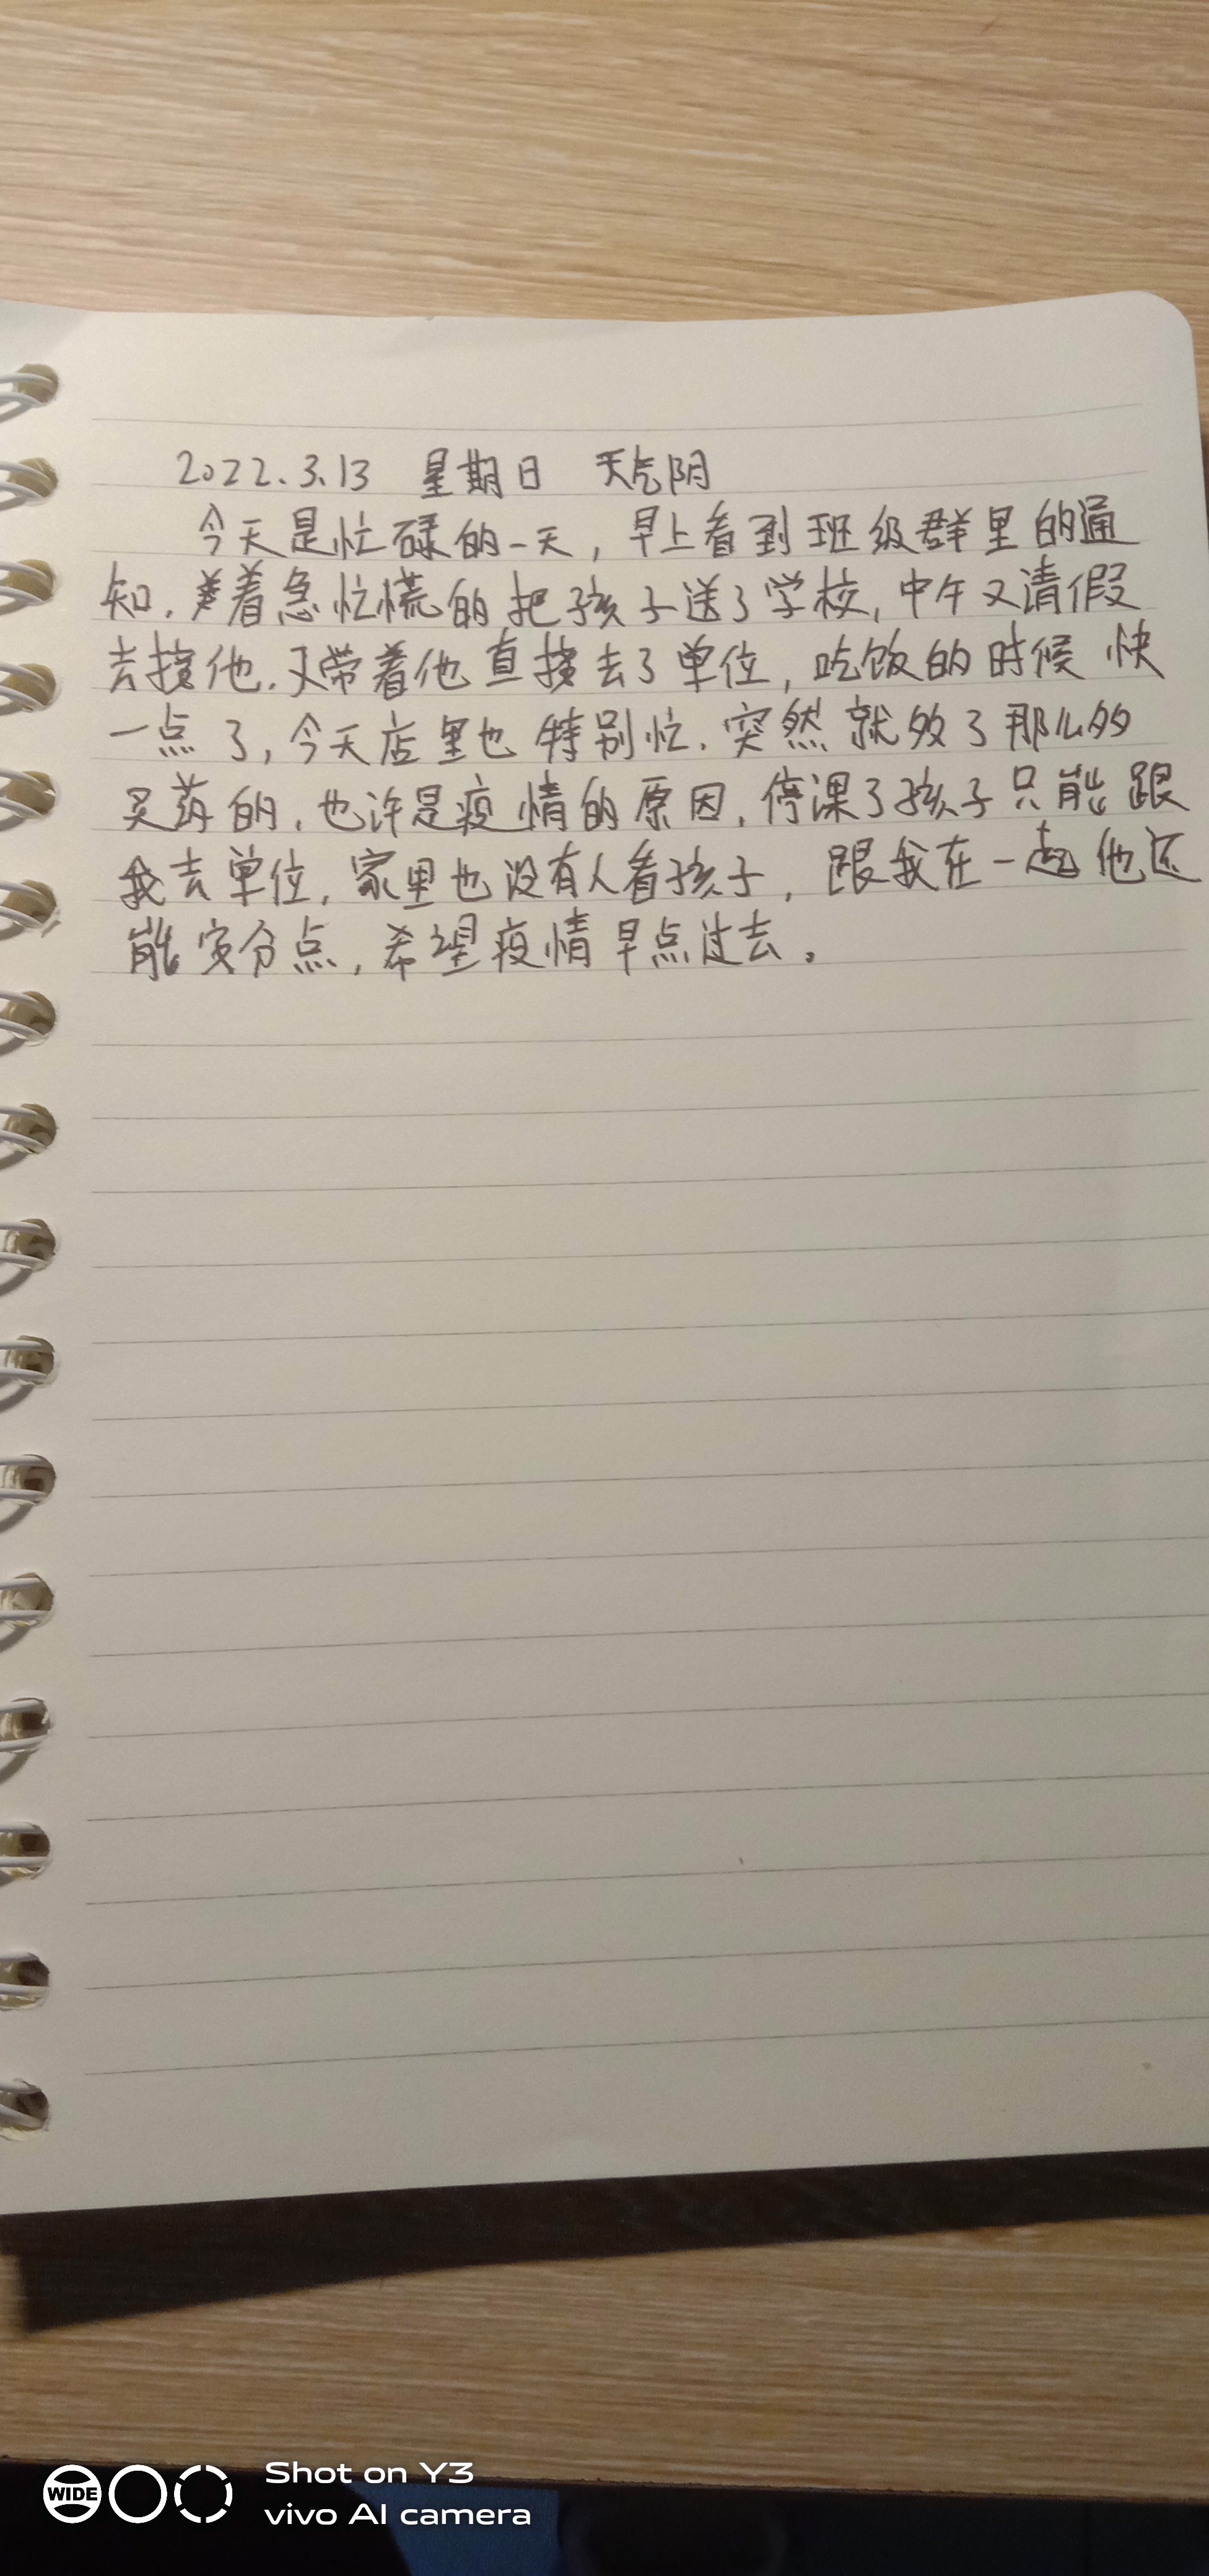 2022.3.13 星期日 天气阴
今天是忙碌的一天，早上看到班级群里的通
知，着急忙慌的把孩子送了学校，中午又请假
去接他，又带着他直接去了单位，吃饭的时候快
一点了，今天店里也特别忙，突然就多了那么多
买药的，也许是疫情的原因，停课了孩子只能跟
我去单位，家里也没有人看孩子，跟我在一起他还
能安分点，希望疫情早点过去。
WIDE
Shot on Y3
vivo AI camera